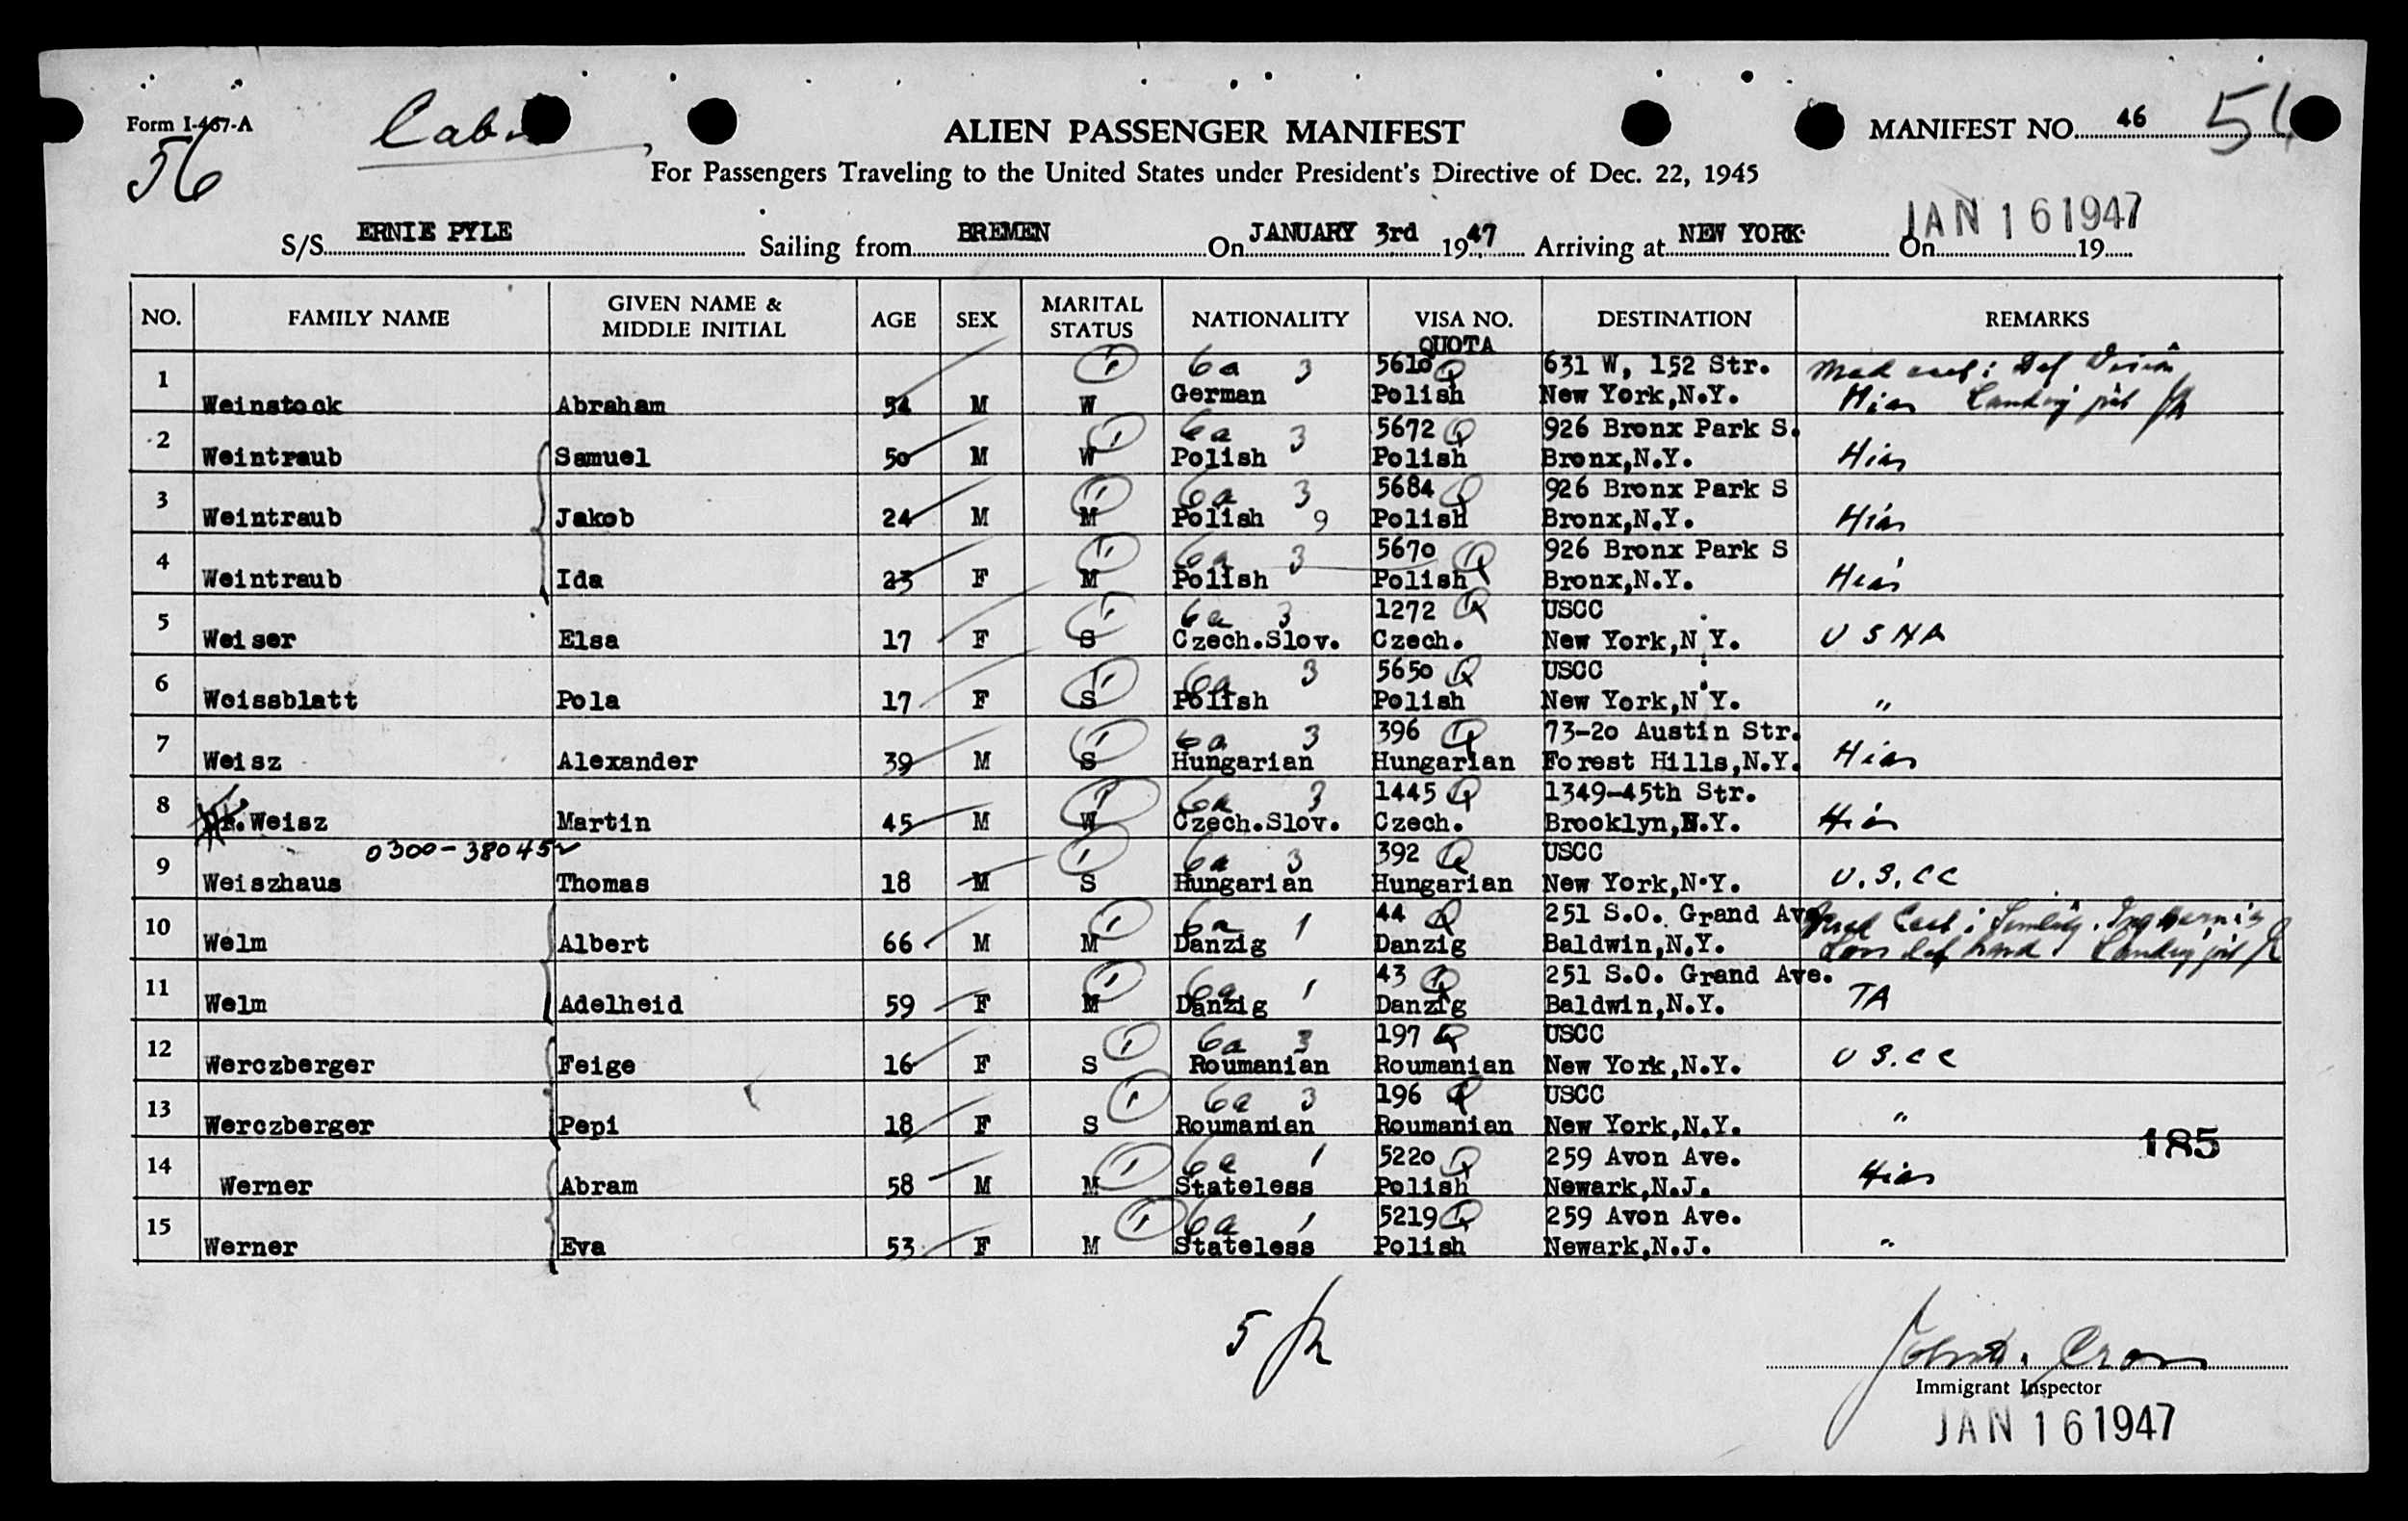 Form I-467-A
56
ALIEN PASSENGER MANIFEST
MANIFEST NO. 46
For Passengers Traveling to the United States under President's Directive of Dec. 22, 1945
S/S ERNIE PYLE Sailing from BREMEN On JANUARY 3rd 1947 Arriving at NEW YORK On 19
JAN 16 1947
NO. FAMILY NAME GIVEN NAME & MIDDLE INITIAL AGE SEX MARITAL STATUS NATIONALITY VISA NO. QUOTA DESTINATION REMARKS
1 6a 3 5610 Q 631 W, 152 Str. Med cert: Def Vision
Weinstock Abraham 54 M W German Polish New York,N.Y. Hias
2 6a 3 5672 Q 926 Bronx Park S.
Weintraub Samuel 50 M W Polish Polish Bronx,N.Y. Hias
3 6a 3 5684 Q 926 Bronx Park S
Weintraub Jakob 24 M M Polish 9 Polish Bronx,N.Y. Hias
4 6a 3 5670 Q 926 Bronx Park S
Weintraub Ida 23 F M Polish Polish Bronx,N.Y. Hias
5 6a 3 1272 Q USCC
Weiser Elsa 17 F S Czech.Slov. Czech. New York,N.Y. USNA
6 6a 3 5650 Q USCC
Weissblatt Pola 17 F S Polish Polish New York,N.Y. "
7 6a 3 396 Q 73-20 Austin Str.
Weisz Alexander 39 M S Hungarian Hungarian Forest Hills,N.Y. Hias
8 6a 3 1445 Q 1349-45th Str.
Weisz Martin 45 M W Czech.Slov. Czech. Brooklyn,N.Y. Hias
0300-38045
9 6a 3 392 Q USCC
Weiszhaus Thomas 18 M S Hungarian Hungarian New York,N.Y. U.S.CC
10 6a 1 44 Q 251 S.O. Grand Ave.
Welm Albert 66 M M Danzig Danzig Baldwin,N.Y.
11 6a 1 43 Q 251 S.O. Grand Ave.
Welm Adelheid 59 F M Danzig Danzig Baldwin,N.Y. TA
12 6a 3 197 Q USCC
Werczberger Feige 16 F S Roumanian Roumanian New York,N.Y. US.CC
13 6a 3 196 Q USCC
Werczberger Pepi 18 F S Roumanian Roumanian New York,N.Y. "
185
14 6a 1 5220 Q 259 Avon Ave.
Werner Abram 58 M M Stateless Polish Newark,N.J. Hias
15 6a 1 5219 Q 259 Avon Ave.
Werner Eva 53 F M Stateless Polish Newark,N.J. "
5
Immigrant Inspector
JAN 16 1947